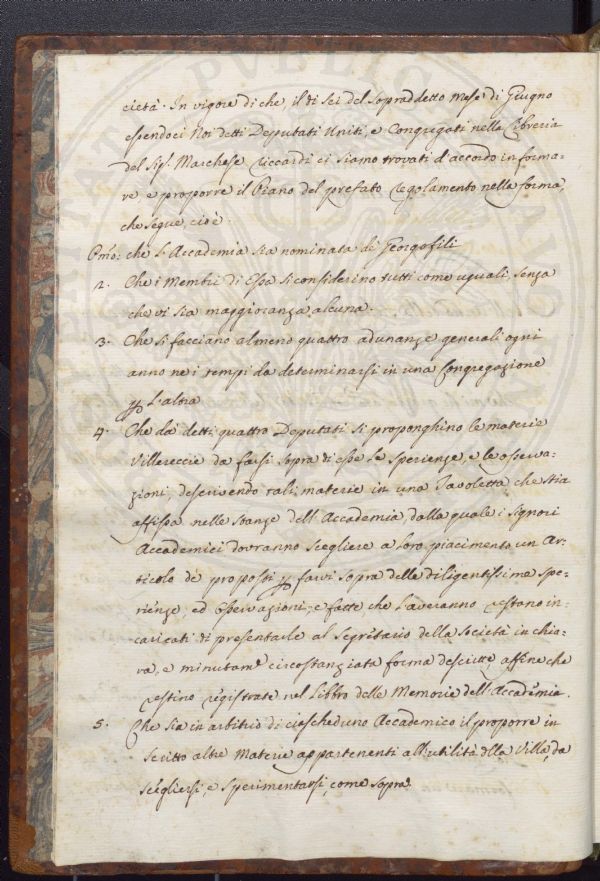 cietà. In vigore di che il dì sei del sopraddetto Mese di Giugno
essendoci Noi detti Deputati Uniti, e Congregati nella Libreria
del Sig.r Marchese Riccardi ci siamo trovati d'accordo in forma-
re e proporre il Piano del prefato regolamento nella forma,
che segue, cioè.
Pmo: che l'Accademia sia nominata de Georgofili
2. Che i Membri di Essa si considerino tutti come uguali senza
che vi sia maggioranza alcuna.
3. Che si facciano almeno quattro adunanze generali ogni
anno ne i tempi da determinarsi in una Congregazione
p L'altra
4. Che da detti quattro Deputati si proponghino le materie
Villereccie da farsi sopra di esse le sperienze, e le osserva-
zioni, descrivendo tali materie in una Tavoletta che stia
affissa nelle stanze dell'Accademia dalla quale i Signori
Accademici dovranno scegliere a loro piacimento un Ar-
ticolo de proposti p farvi sopra delle diligentissime spe-
rienze, ed osservazioni; e fatte che l'averanno restano in-
caricati di presentarle al Segretario della Società in chia-
ra, e minutam.e circostanziata forma descritte, affine che
restino registrate nel Libbro delle Memorie dell'Accademia.
5. Che sia in arbitrio di ciascheduno Accademico il proporre in
scritto altre Materie appartenenti all'utilità dlla Villa, da
scegliersi, e sperimentarsi, come sopra